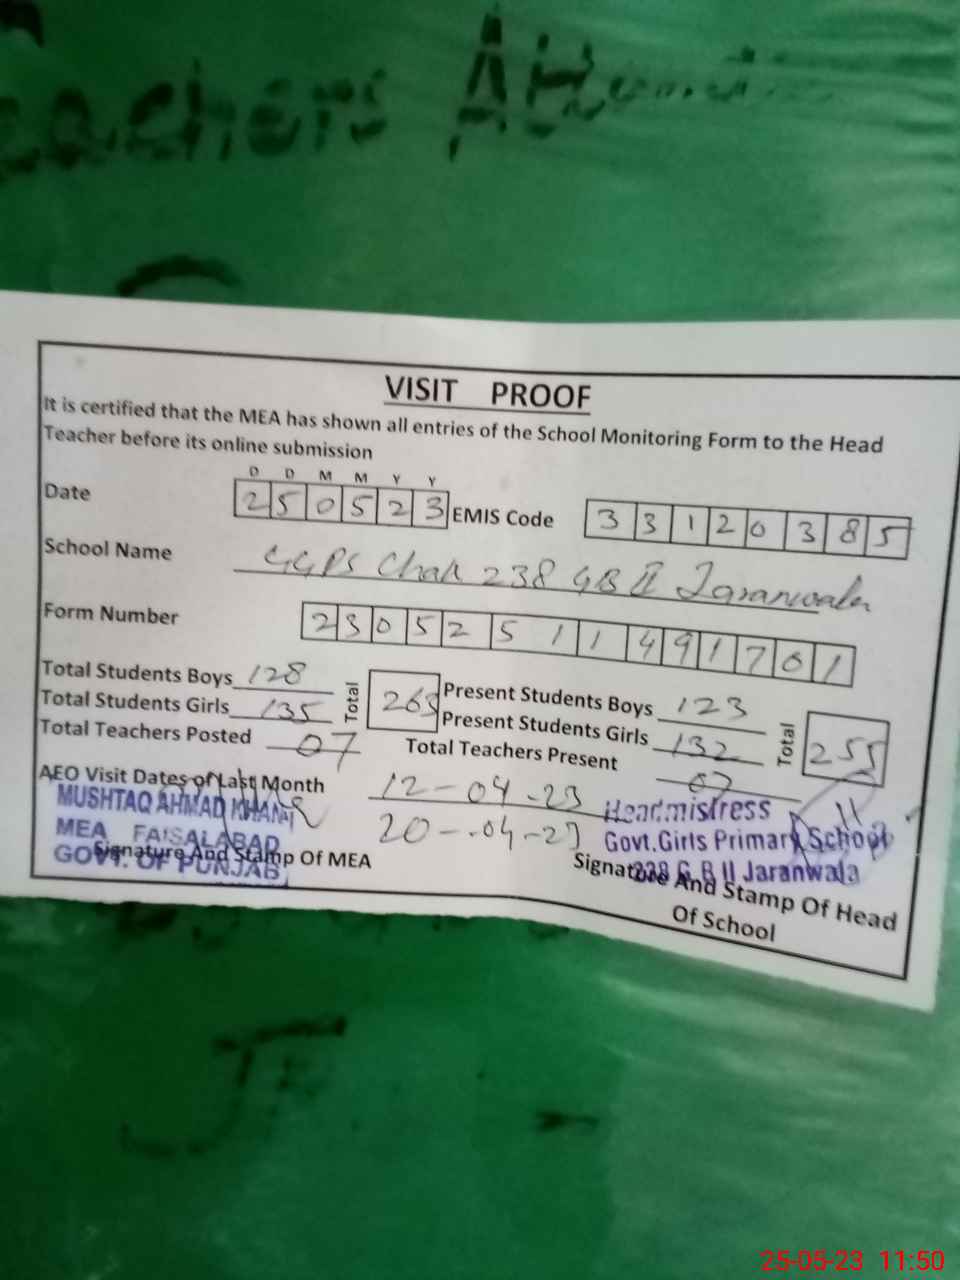 Teachers
VISIT PROOF
It is certified that the MEA has shown all entries of the School Monitoring Form to the Head
Teacher before its online submission
D D M M Y Y
Date 2 5 0 5 2 3 EMIS Code 3 3 1 2 0 3 8 5
School Name GGPS Chak 238 GB II Jaranwala
Form Number 2 3 0 5 2 5 1 1 4 9 1 7 0 1
Total Students Boys 128 Total 263 Present Students Boys 123 Total 255
Total Students Girls 135 Present Students Girls 132
Total Teachers Posted 07 Total Teachers Present 07
AEO Visit Dates of Last Month 12-04-23
20-04-23
MUSHTAQ AHMAD KHAN
MEA FAISALABAD
GOVT. OF PUNJAB
Signature And Stamp Of MEA
Headmistress
Govt.Girls Primary School
238 G.B II Jaranwala
Signature And Stamp Of Head
Of School
25-05-23 11:50